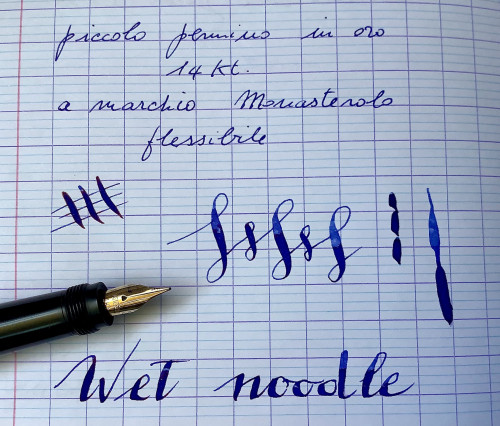 piccolo pennino in oro
14 Kt.
a marchio Monasterolo
flessibile
fsfsf
Wet noodle